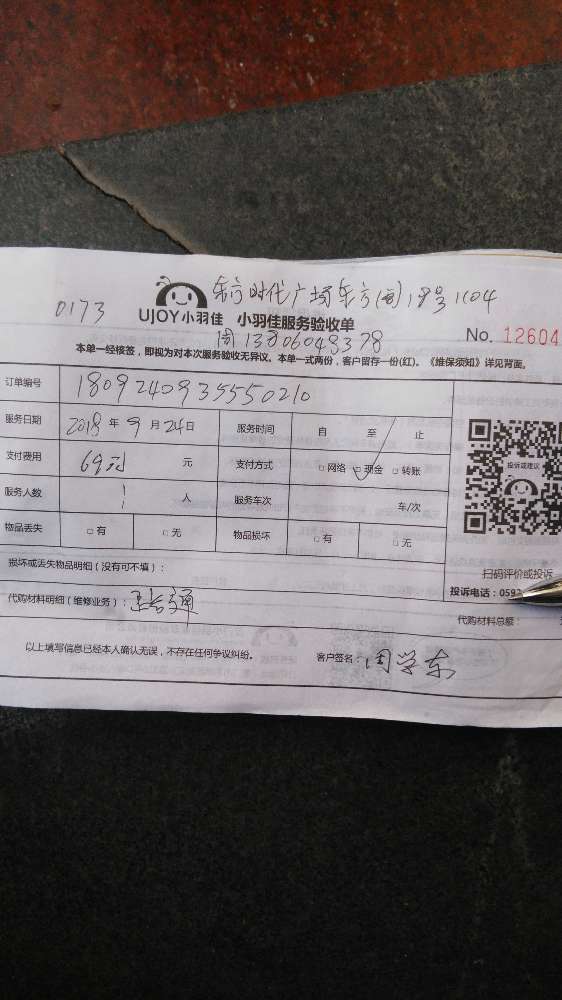 东方时代广场东方阁18号1104
0173
UJOY小羽佳 小羽佳服务验收单
周13806048378
No. 12604
本单一经核签，即视为对本次服务验收无异议。本单一式两份，客户留存一份(红)。《维保须知》详见背面。
订单编号 18092409355550210
服务日期 2018年9月24日 服务时间 自 至 止
支付费用 69元 元 支付方式 □网络 □现金 □转账
投诉或建议
服务人数 1 人 服务车次 车/次
物品丢失 □有 □无 物品损坏 □有 □无
损坏或丢失物品明细（没有可不填）：
扫码评价或投诉
投诉电话：0592
代购材料明细（维修业务）：
代购材料总额：
以上填写信息已经本人确认无误，不存在任何争议纠纷。 客户签名：周学东